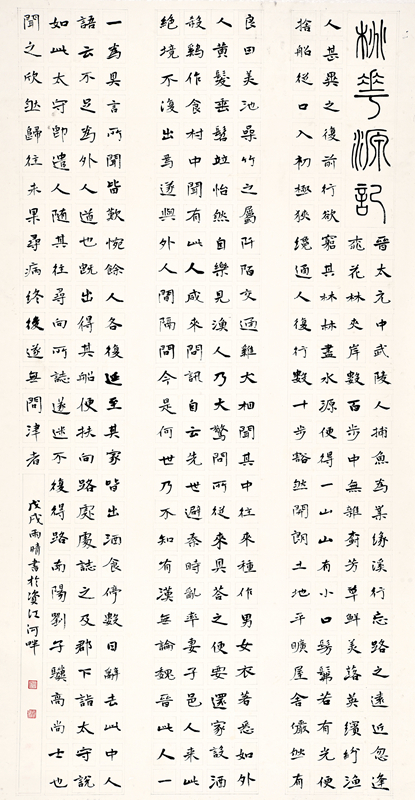 桃華源記
晉太元中武陵人捕魚為業緣溪行忘路之遠近忽逢
桃花林夾岸數百步中無雜樹芳草鮮美落英繽紛漁
人甚異之復前行欲窮其林林盡水源便得一山山有小口髣髴若有光便
捨船從口入初極狹纔通人復行數十步豁然開朗土地平曠屋舍儼然有
良田美池桑竹之屬阡陌交通雞犬相聞其中往來種作男女衣著悉如外
人黃髮垂髫並怡然自樂見漁人乃大驚問所從來具答之便要還家設酒
殺鷄作食村中聞有此人咸來問訊自云先世避秦時亂率妻子邑人來此
絕境不復出焉遂與外人間隔問今是何世乃不知有漢無論魏晉此人一
一為具言所聞皆歎惋餘人各復延至其家皆出酒食停數日辭去此中人
語云不足為外人道也既出得其船便扶向路處處誌之及郡下詣太守說
如此太守即遣人隨其往尋向所誌遂迷不復得路南陽劉子驥高尚士也
聞之欣然歸往未果尋病終後遂無問津者
戊戌雨晴書於資江河畔